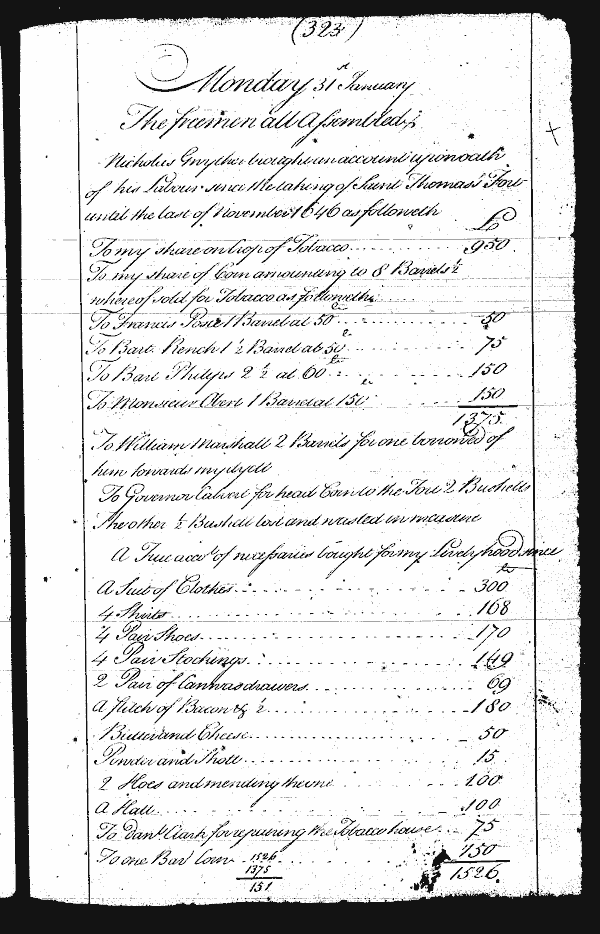 (323)
Monday 31st January
The freemen all Assembled
Nicholas Gwyther brought in an account upon oath
of his Labour since the taking of Saint Thomas's Fort
until the last of November 1646 as followeth
To my share on Crop of Tobacco 950
To my share of Corn amounting to 8 Barrels ½
whereof sold for Tobacco as followeth
To Francis Posie 1 Barrel at 50 50
To Bart. Kench 1 ½ Barrel at 50 75
To Bart Philips 2 ½ at 60 150
To Monsieur Obert 1 Barrel at 150 150
1375
To William Marshall 2 Barrels for one borrowed of
him towards my
To Governor Calvert for head Corn to the Fort 2 Bushells
The other ½ Bushell lost and wasted in measure
A True acct of necessaries bought for my Livelyhood since
A Suit of Clothes 300
4 Shirts 168
4 Pair Shoes 170
4 Pair Stockings 149
2 Pair of Canvas drawers 69
A flitch of Bacon & ½ 180
Butter and Cheese 50
Powder and Shott 15
2 Hoes and mending them 100
A Hatt 100
To Danl Clark for repairing the Tobacco house 75
To one Bar Corn 150
1526 1526
1375
151